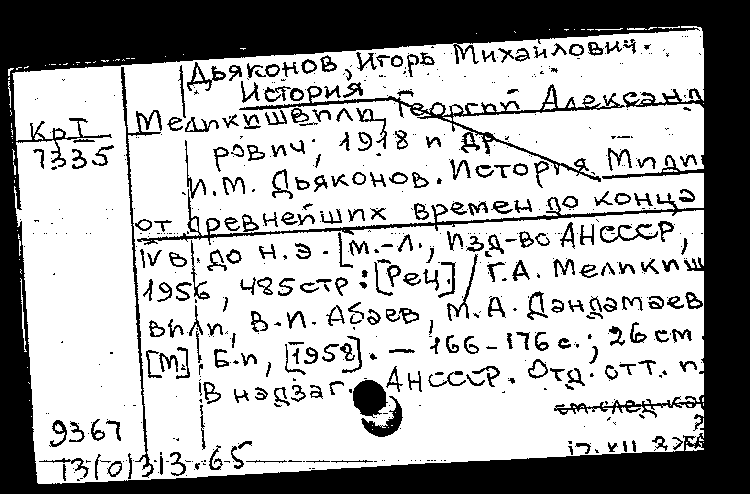 Дьяконов, Игорь Михайлович.
История
Меликишвили, Георгий Александ
КрI
7335
рович, 1918 и др.
И.М. Дьяконов. История Мидии
от древнейших времен до конца
IV в. до н.э. [М.-Л., Изд-во АНСССР,
1956, 485 стр: [Рец.] / Г.А. Меликиш
вили, В.И. Абаев, М.А. Дандамаев
[М]. Б.и, [1958]. — 166-176 с.; 26 см.
В надзаг. АНСССР. Отд. отт. и
см. след. ка
9367
13/0/313.65